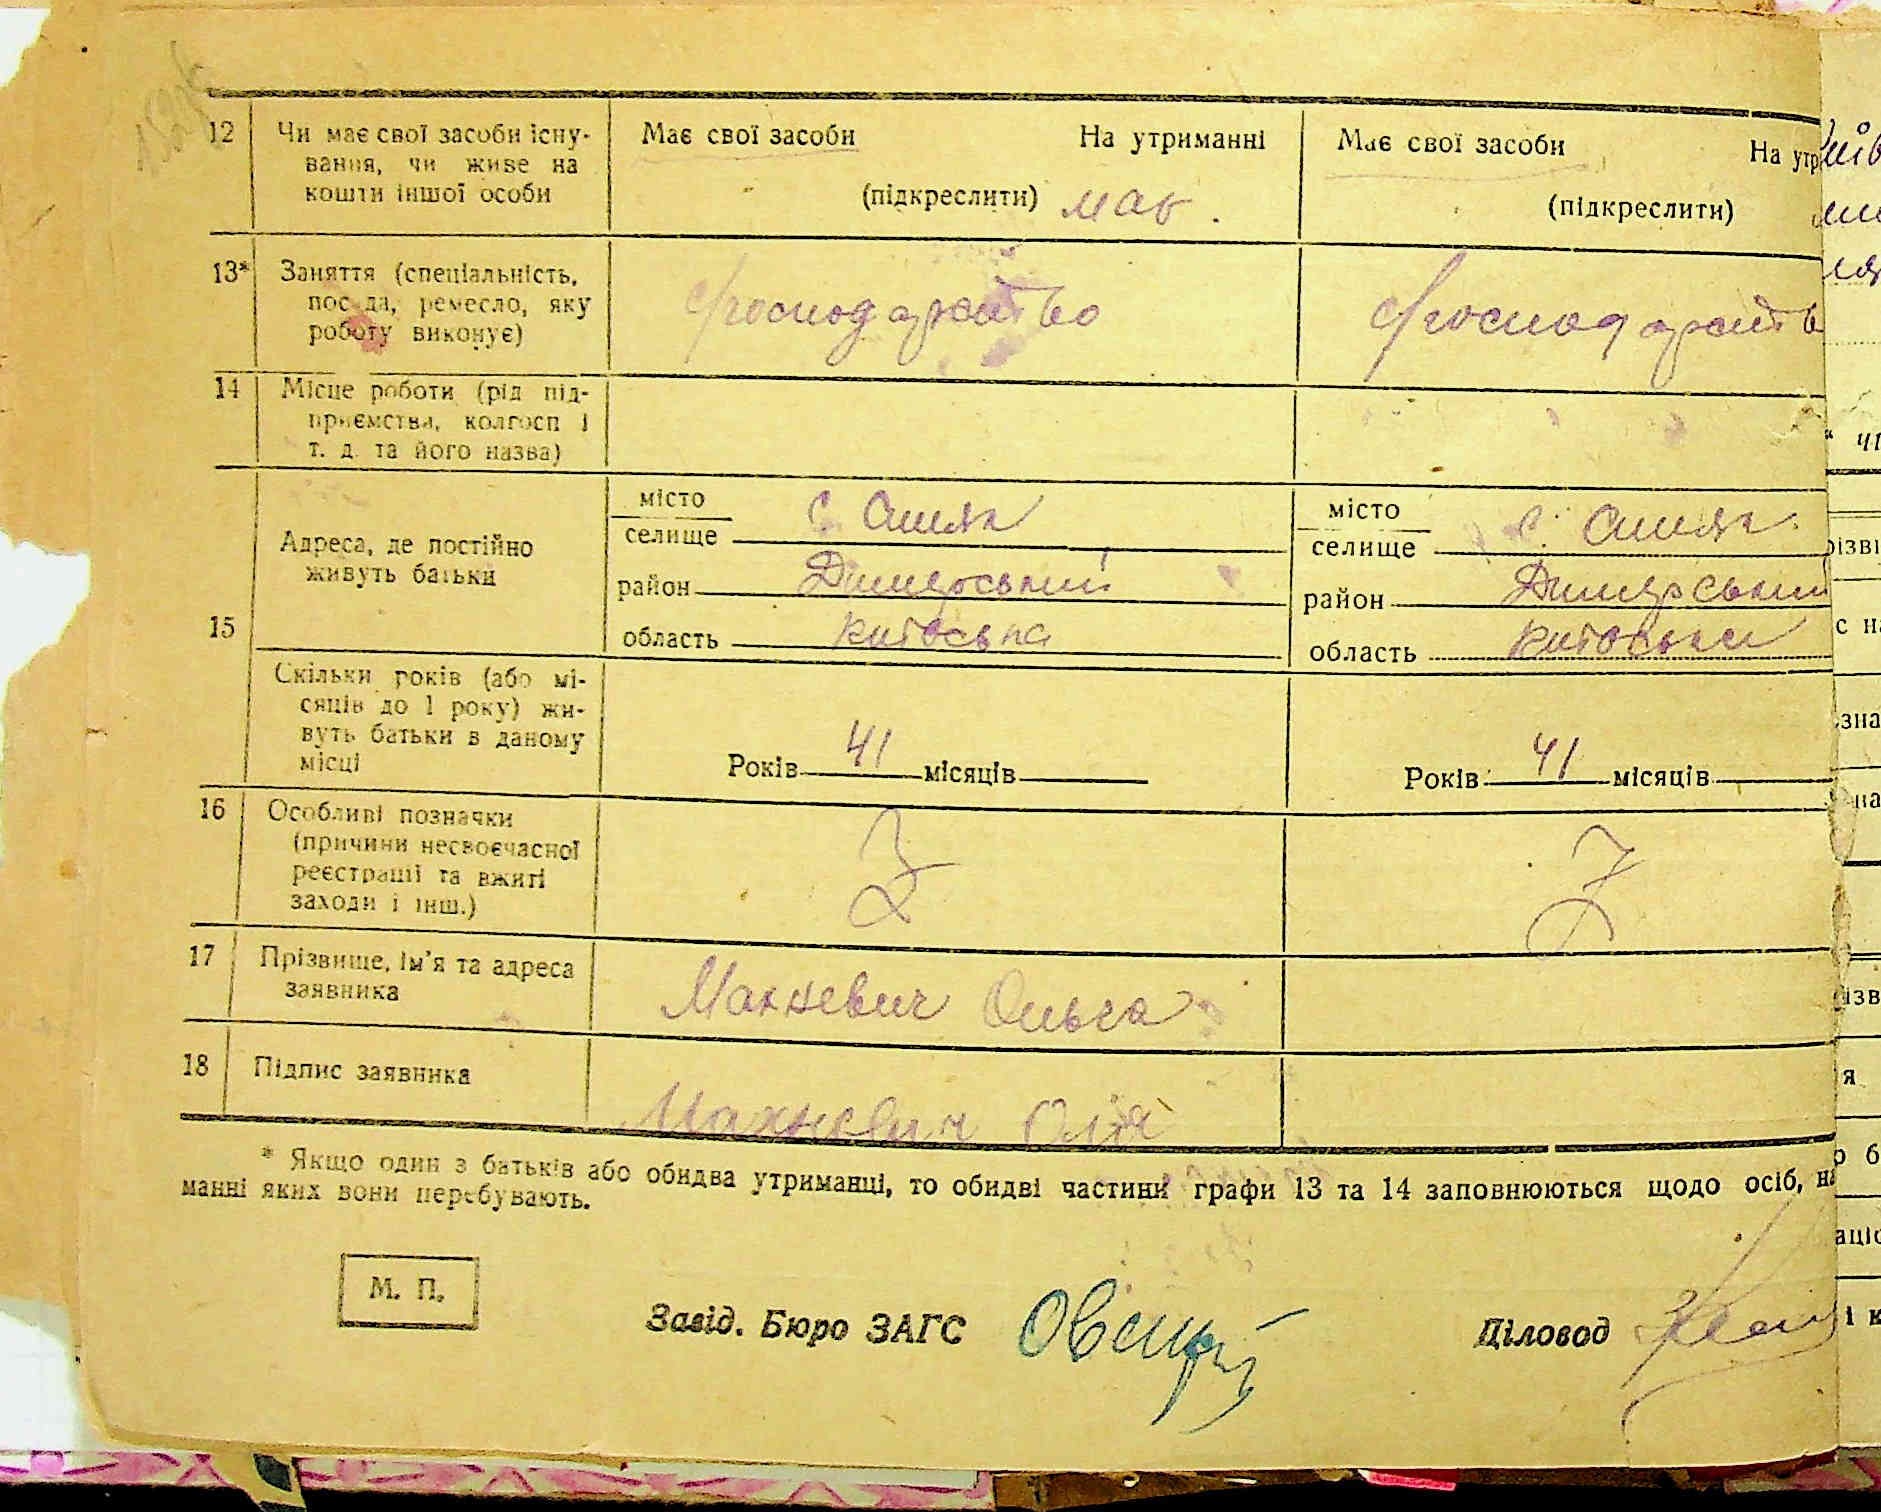 12 Чи має свої засоби існу- Має свої засоби На утриманні Має свої засоби На утр
вання, чи живе на
кошти іншої особи (підкреслити) має. (підкреслити)
13* Заняття (спеціальність, Господарство Господарств
посада, ремесло, яку
роботу виконує)
14 Місце роботи (рід під-
приємства, колгосп і
т. д. та його назва)
15 Адреса, де постійно
живуть батьки
місто с. Ошляк місто с. Ошляк
селище селище
район Димерський район Димерський
область область
Скільки років (або мі-
сяців до 1 року) жи-
вуть батьки в даному
місці
Років 41 місяців Років 41 місяців
16 Особливі позначки
(причини несвоєчасної
реєстрації та вжиті
заходи і інш.)
17 Прізвище, ім'я та адреса Махневич Ольга
заявника
18 Підпис заявника Махневич Оля
* Якщо один з батьків або обидва утриманці, то обидві частини графи 13 та 14 заповнюються щодо осіб, на
манні яких вони перебувають.
М. П.
Завід. Бюро ЗАГС Діловод